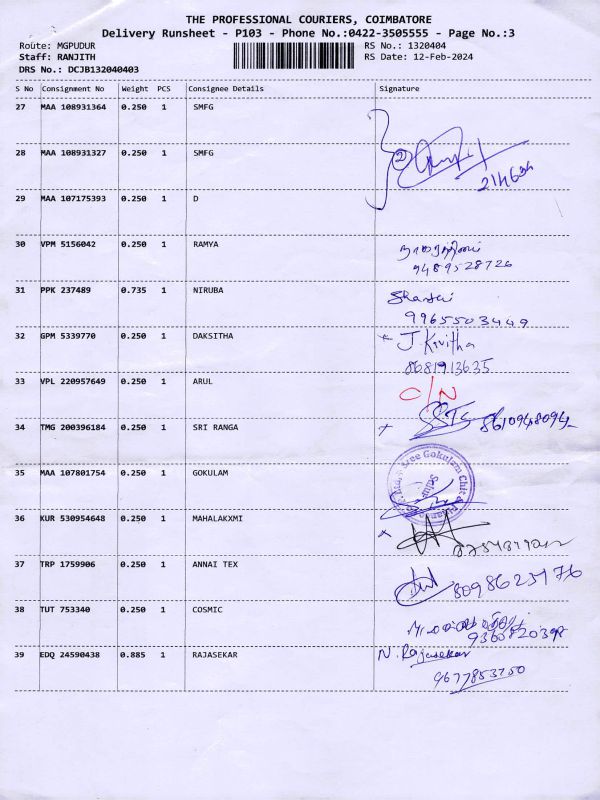 THE PROFESSIONAL COURIERS, COIMBATORE
Delivery Runsheet - P103 - Phone No.:0422-3505555 - Page No.:3
Route: MGPUDUR RS No.: 1320404
Staff: RANJITH RS Date: 12-Feb-2024
DRS No.: DCJB132040403
S No Consignment No Weight PCS Consignee Details Signature
27 MAA 108931364 0.250 1 SMFG
28 MAA 108931327 0.250 1 SMFG 2
29 MAA 107175393 0.250 1 D
30 VPM 5156042 0.250 1 RAMYA
9489528726
31 PPK 237489 0.735 1 NIRUBA Shanthi
9965503449
32 GPM 5339770 0.250 1 DAKSITHA J. Kavitha
8681913635
33 VPL 220957649 0.250 1 ARUL O/N
34 TMG 200396184 0.250 1 SRI RANGA
35 MAA 107801754 0.250 1 GOKULAM Sree Gokulam Chit &
36 KUR 530954648 0.250 1 MAHALAKXMI
37 TRP 1759906 0.250 1 ANNAI TEX 8098623176
38 TUT 753340 0.250 1 COSMIC
39 EDQ 24590438 0.885 1 RAJASEKAR N. Rajasekar
9677853750